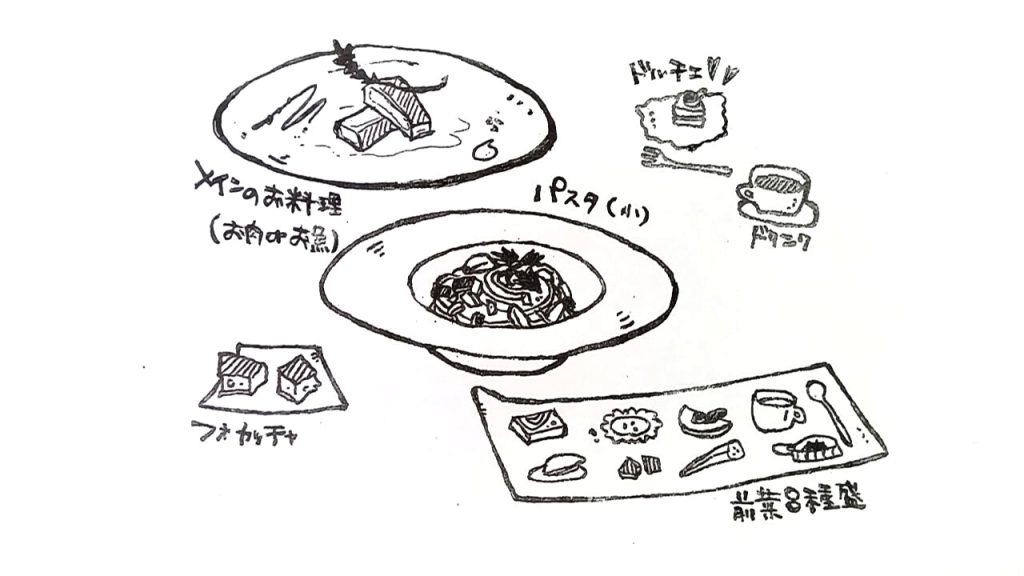 ドルチェ♡♡
メインのお料理
(お肉orお魚)
パスタ(小)
ドリンク
フォカッチャ
前菜8種盛